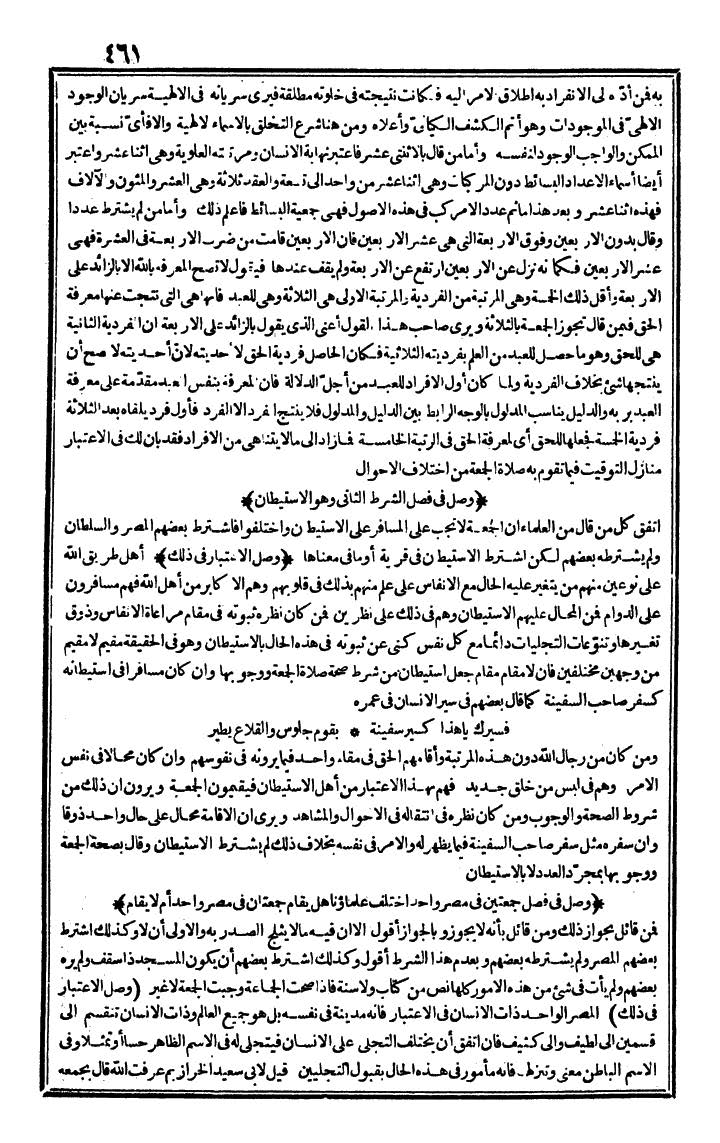 ٤٦١
به فن أدّاه الى الانفراد به اطلاق الامر اليه فكانت نتيجته فى خلوته مطلقة فيرى سريانه فى الالهية سريان الوجود
الالهىّ فى الموجودات وهو أتم الكشف الكيانى وأعلاه ومن هنا شرع التخلق بالاسماء الالهية والا فأىّ نسبة بين
الممكن والواجب الوجود لنفسه وأما من قال بالاثنى عشر فاعتبر نهاية الانسان ومرتبته العلوية وهى اثنا عشر واعتبر
أيضا أسماء الاعداد البسائط دون المركبات وهى اثنا عشر من واحد الى تسعة والعقد ثلاثة وهى العشر والمئون والآلاف
فهذه اثنا عشر وبعد هذا ما ثم عدد الا مركب فى هذه الاصول فهى جمعية البسائط فاعلم ذلك وأما من لم يشترط عددا
وقال بدون الاربعين وفوق الاربعة التى هى عشر الاربعين فان الاربعين قامت من ضرب الاربعة فى العشرة فهى
عشر الاربعين فكما نزل عن الاربعين ارتفع عن الاربعة ولم يقف عندها فيقول لا تصح المعرفة بالله الا بالزائد على
الاربعة وأقل ذلك الخمسة وهى المرتبة من الفردية والمرتبة الاولى هى الثلاثة وهى للعبد فانها هى التى نتجت عنها معرفة
الحق فمن قال تجوز الجمعة بالثلاثة ويرى صاحب هذا القول أعنى الذى يقول بالزائد على الاربعة ان الفردية الثانية
هى للحق وهو ما حصل للعبد من العلم بفرديته الثلاثية فكان الحاصل فردية الحق لا أحديته لانّ أحديته لا يصح أن
ينتجها شئ بخلاف الفردية ولما كان أول الافراد للعبد من أجل الدلالة فان المعرفة بنفس العبد مقدّمة على معرفة
العبد بربه والدليل يناسب المدلول بالوجه الرابط بين الدليل والمدلول فلا ينتج الفرد الا الفرد فأول فرد يلقاه بعد الثلاثة
فردية الخمسة فجعلها للحق أى لمعرفة الحق فى الرتبة الخامسة فما زاد الى ما لا يتناهى من الافراد فقد بان لك فى الاعتبار
منازل التوقيت فيما تقوم به صلاة الجمعة من اختلاف الاحوال
﴿وصل فى فصل الشرط الثانى وهو الاستيطان﴾
اتفق كل من قال من العلماء ان الجمعة لا تجب على المسافر على الاستيطان واختلفوا فاشترط بعضهم المصر والسلطان
ولم يشترطه بعضهم لكن اشترط الاستيطان فى قرية أو ما فى معناها ﴿وصل الاعتبار فى ذلك﴾ أهل طريق الله
على نوعين منهم من يتغير عليه الحال مع الانفاس على علم منهم بذلك فى قلوبهم وهم الاكابر من أهل الله فهم مسافرون
على الدوام فمن المحال عليهم الاستيطان وهم فى ذلك على نظرين فمن كان نظره ثبوته فى مقام مراعاة الانفاس وذوق
تغييرها وتنوّعات التجليات دائما مع كل نفس كنى عن ثبوته فى هذه الحال بالاستيطان وهو فى الحقيقة مقيم لا مقيم
من وجهين مختلفين فان لا مقام مقام جعل استيطان من شرط صحة صلاة الجمعة ووجوبها وان كان مسافرا فى استيطانه
كسفر صاحب السفينة كما قال بعضهم فى سير الانسان فى عمره
فسيرك يا هذا كسير سفينة * بقوم جلوس والقلاع يطير
ومن كان من رجال الله دون هذه المرتبة وأقامهم الحق فى مقام واحد فيما يرونه فى نفوسهم وان كان محالا فى نفس
الامر وهم فى لبس من خلق جديد فهم بهذا الاعتبار من أهل الاستيطان فيقيمون الجمعة ويرون ان ذلك من
شروط الصحة والوجوب ومن كان نظره فى انتقاله فى الاحوال والمشاهد ويرى ان الاقامة محال على حال واحد ذوقا
وان سفره مثل سفر صاحب السفينة فيما يظهر له والامر فى نفسه بخلاف ذلك لم يشترط الاستيطان وقال بصحة الجمعة
ووجوبها بمجرّد العدد لا بالاستيطان
﴿وصل فى فصل جمعتين فى مصر واحد اختلف علماؤنا هل يقام جمعتان فى مصر واحد أم لا يقام﴾
فمن قائل بجواز ذلك ومن قائل بأنه لا يجوز وبالجواز أقول الا ان فيه ما لا يثلج الصدر به والاولى أن لا وكذلك اشترط
بعضهم المصر ولم يشترطه بعضهم وبعدم هذا الشرط أقول وكذلك اشترط بعضهم أن يكون المسجد ذا سقف ولم يره
بعضهم ولم يأت فى شئ من هذه الامور كلها نص من كتاب ولا سنة فاذا صحت الجماعة وجبت الجمعة لا غير (وصل الاعتبار
فى ذلك) المصر الواحد ذات الانسان فى الاعتبار فانه مدينة فى نفسه بل هو جميع العالم وذات الانسان تنقسم الى
قسمين الى لطيف والى كثيف فان اتفق أن يختلف التجلى على الانسان فيتجلى له فى الاسم الظاهر حسا أو تمثلا وفى
الاسم الباطن معنى وتنزها فانه مأمور فى هذه الحال بقبول التجليين قيل لابى سعيد الخراز بم عرفت الله قال بجمعه